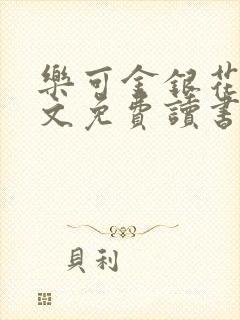 樂可金銀花
文免費讀書
貝利